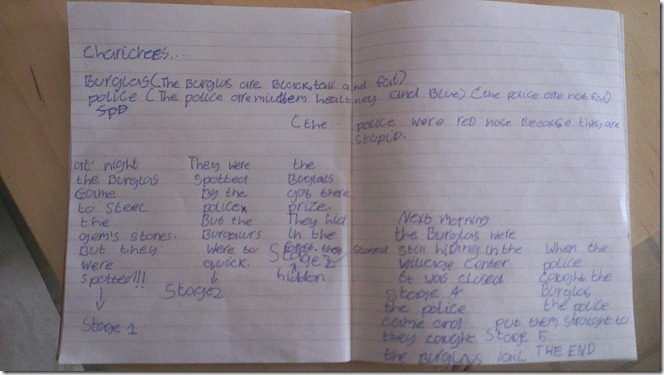 Charichees...
Burglas (The Burglas are Black, tall and fat)
police (The police are midem healthey and Blue) (the police are not fat)
SPD
(the police were red nose Because they are
stupid.
at night
the Burglas
came
to steel
the
gem's stones.
But they
were
spotted!!!
Stage 1
They were
spotted
By the
police
But the
Burgalurs
were to
quick.
Stage2
the
Burglars
got there
prize.
They hid
in the
forest. they stayed
hidden
Stage 2
Next morning
the Burglas were
still hiding in the
village center
it was closed
stage 4
the police
came and
they caught
the Burglas
when the
police
caught the
Burglas
the police
put them straight to
jail THE END
Stage 5